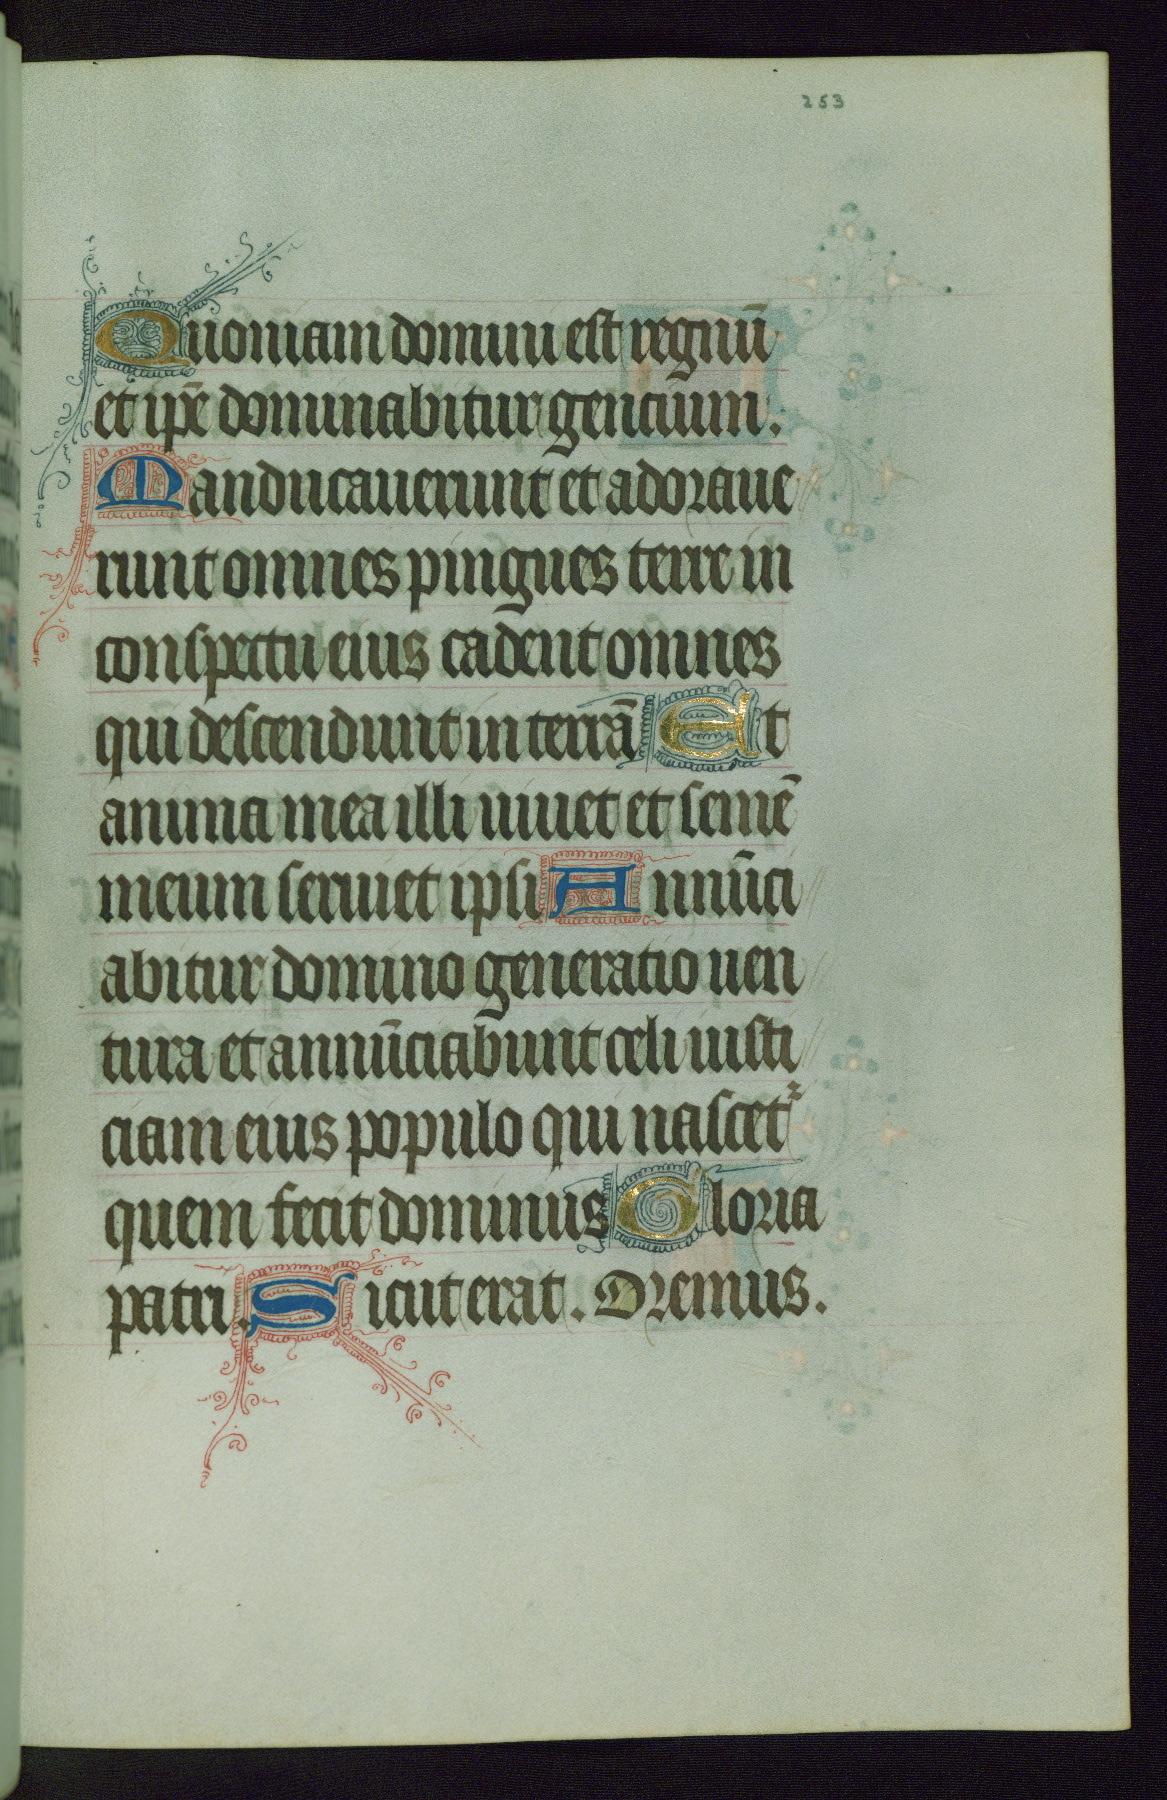 253
Quoniam domini est regnū
et ip̄e dominabitur gencium.
Manducauerunt et adoraue
runt omnes pingues terre in
conspectu eius cadent omnes
qui descendunt in terrā Et
anima mea illi uiuet et semē
meum seruiet ipsi Annūci
abitur domino generatio uen
tura et annūciabunt celi iusti
ciam eius populo qui nascetᷣ
quem fecit dominus Gloria
patri. Sicut erat. Oremus.